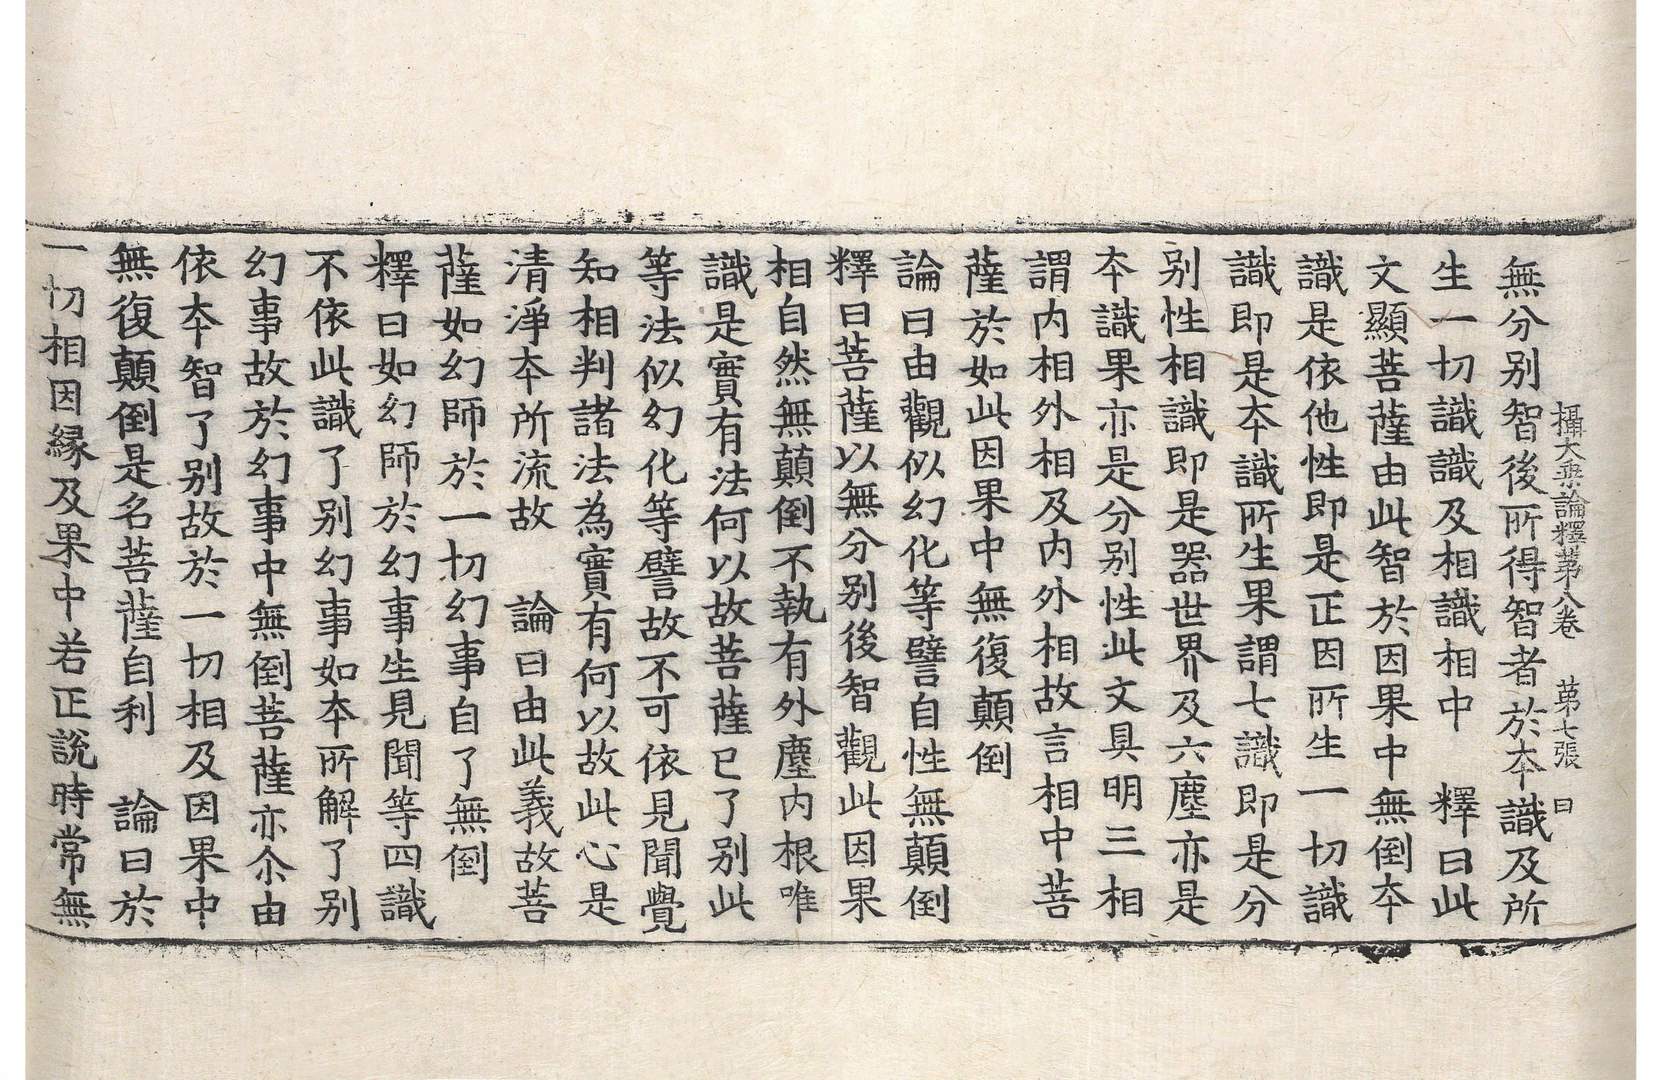 攝大乗論釋苐八卷 苐七張 曰
無分别智後所得智者於本識及所
生一切識識及相識相中 釋曰此
文顯菩薩由此智於因果中無倒本
識是依他性即是正因所生一切識
識即是本識所生果謂七識即是分
别性相識即是器世界及六塵亦是
本識果亦是分别性此文具明三相
謂内相外相及内外相故言相中菩
薩於如此因果中無復顛倒
論曰由觀似幻化等譬自性無顛倒
釋曰菩薩以無分别後智觀此因果
相自然無顛倒不執有外塵内根唯
識是實有法何以故菩薩已了别此
等法似幻化等譬故不可依見聞覺
知相判諸法為實有何以故此心是
清淨本所流故 論曰由此義故菩
薩如幻師於一切幻事自了無倒
釋曰如幻師於幻事生見聞等四識
不依此識了别幻事如本所解了别
幻事故於幻事中無倒菩薩亦尒由
依本智了别故於一切相及因果中
無復顛倒是名菩薩自利 論曰於
一切相因縁及果中若正説時常無